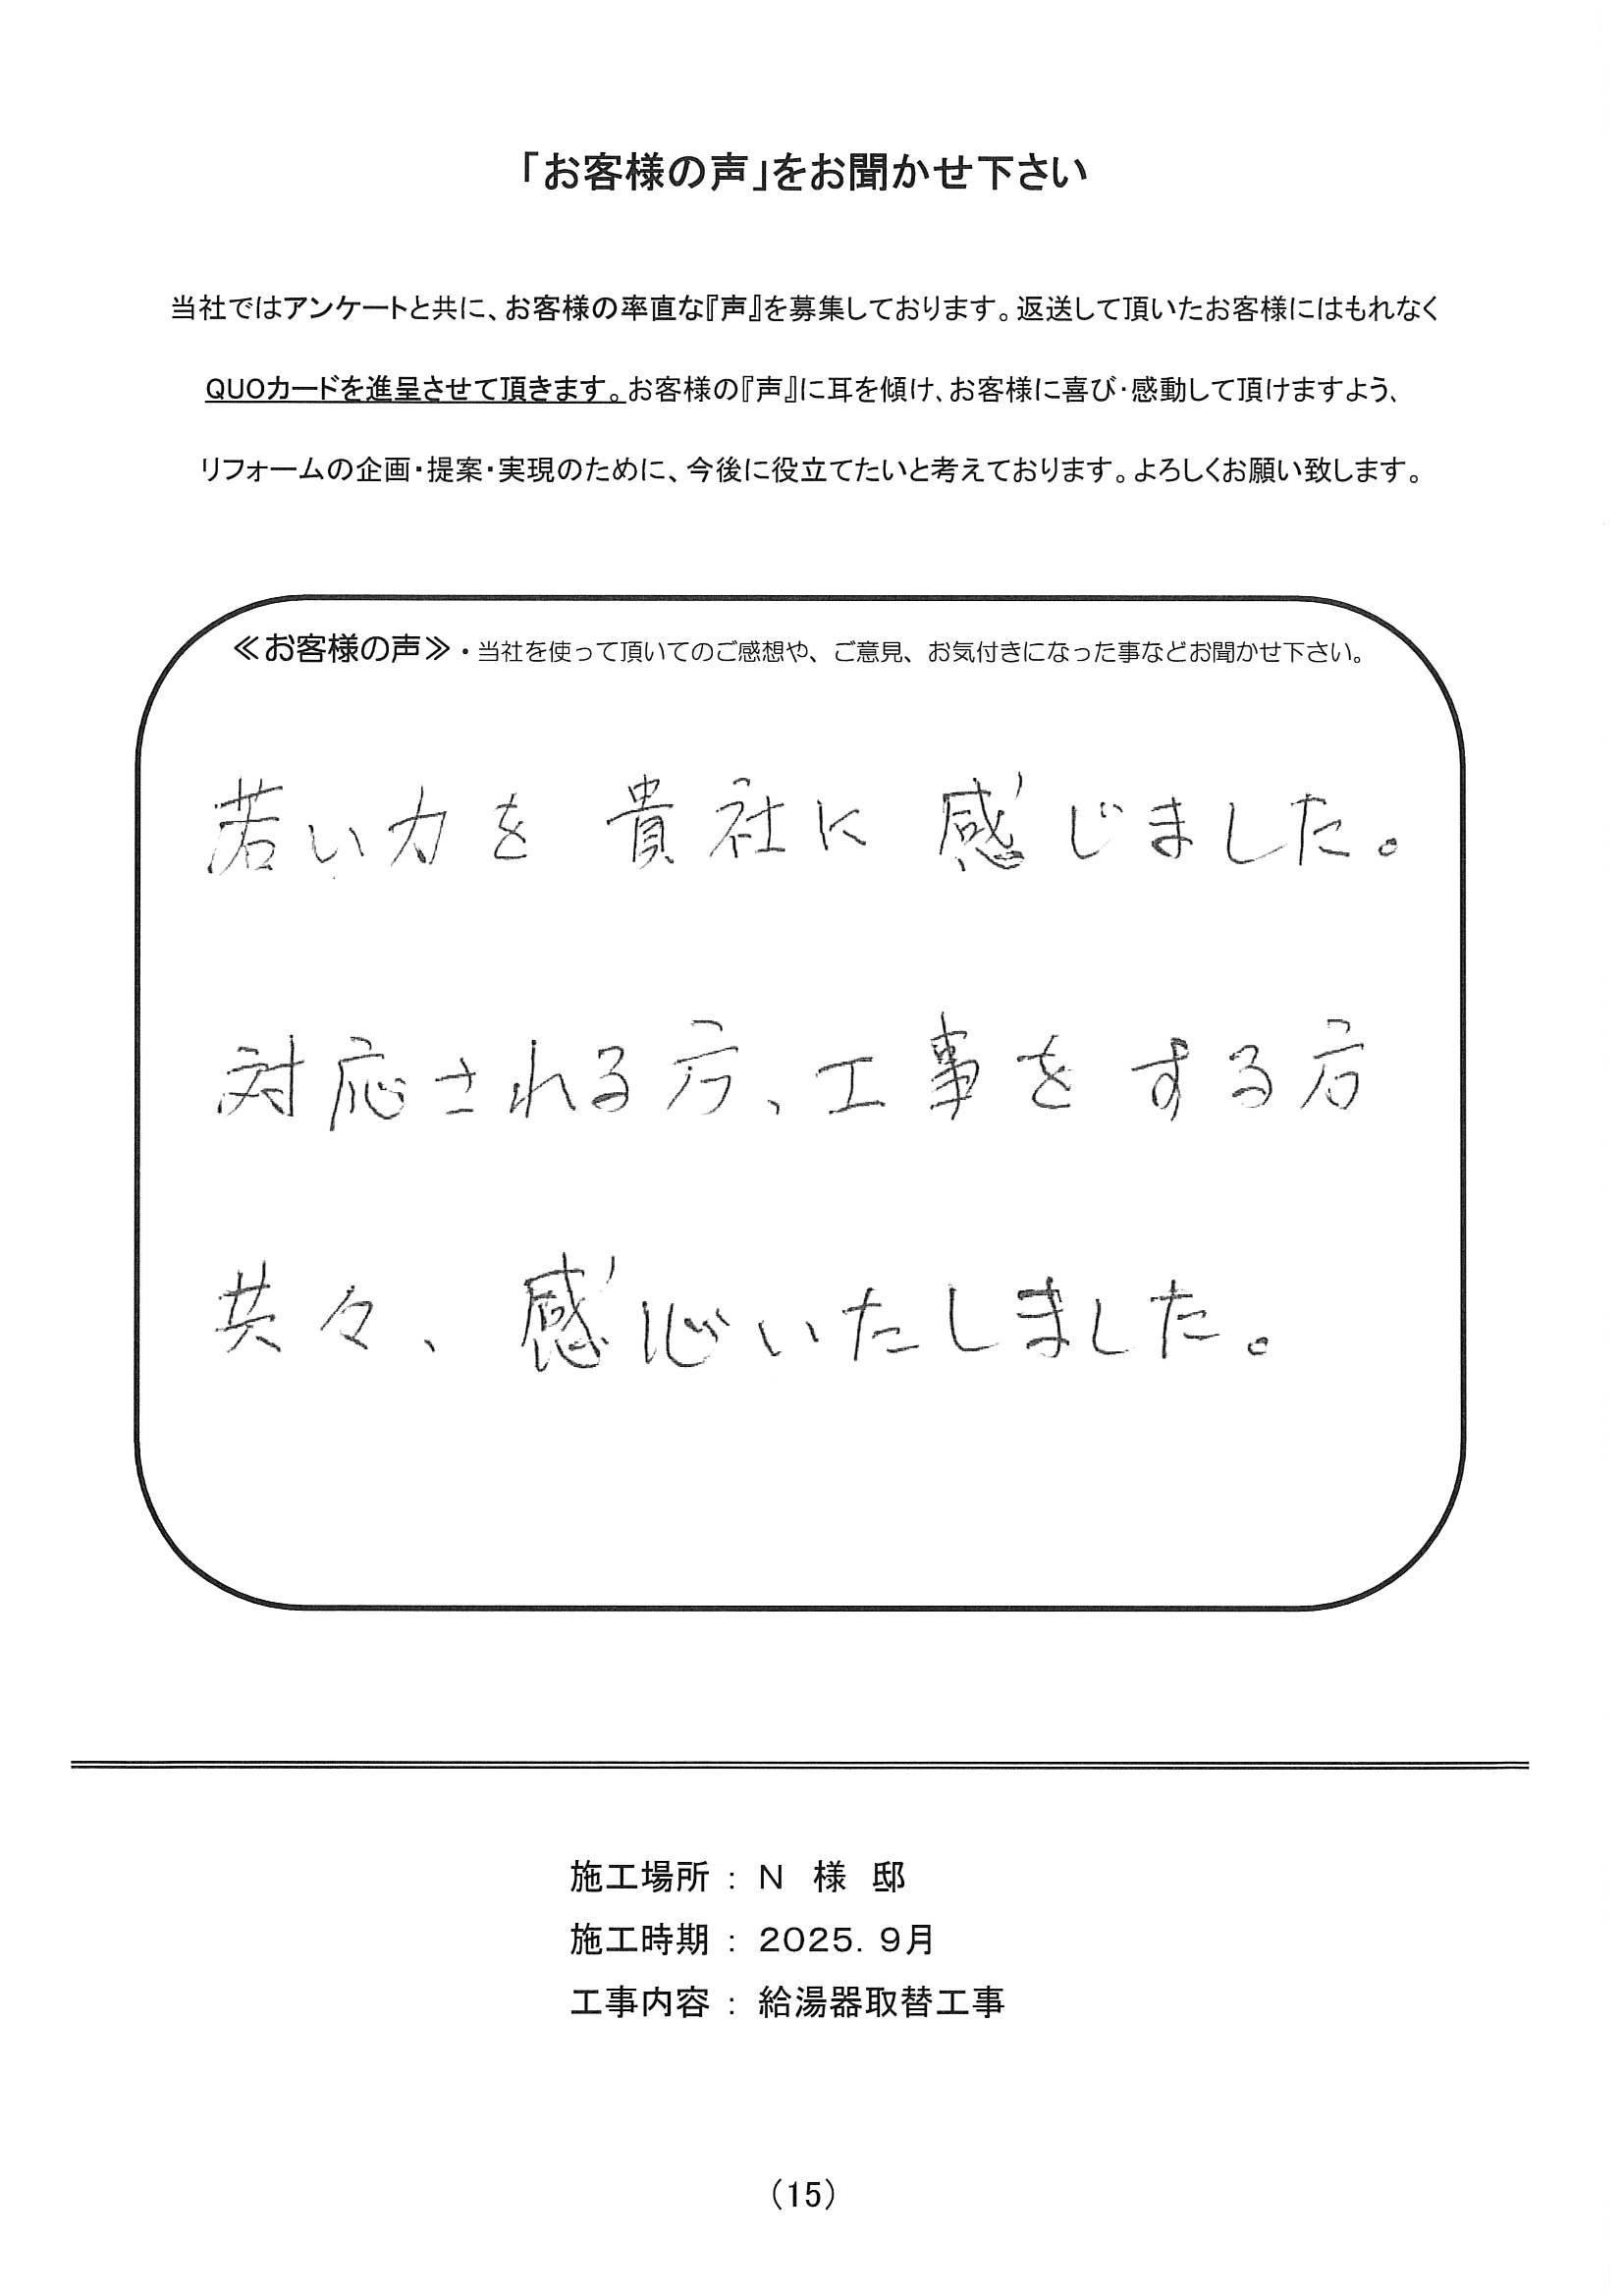 「お客様の声」をお聞かせ下さい
当社ではアンケートと共に、お客様の率直な『声』を募集しております。返送して頂いたお客様にはもれなく
QUOカードを進呈させて頂きます。お客様の『声』に耳を傾け、お客様に喜び・感動して頂けますよう、
リフォームの企画・提案・実現のために、今後に役立てたいと考えております。よろしくお願い致します。
≪お客様の声≫・当社を使って頂いてのご感想や、ご意見、お気付きになった事などお聞かせ下さい。
若い力を貴社に感じました。
対応される方、工事をする方
共々、感心いたしました。
施工場所 : N 様 邸
施工時期 : 2025. 9月
工事内容 : 給湯器取替工事
(15)